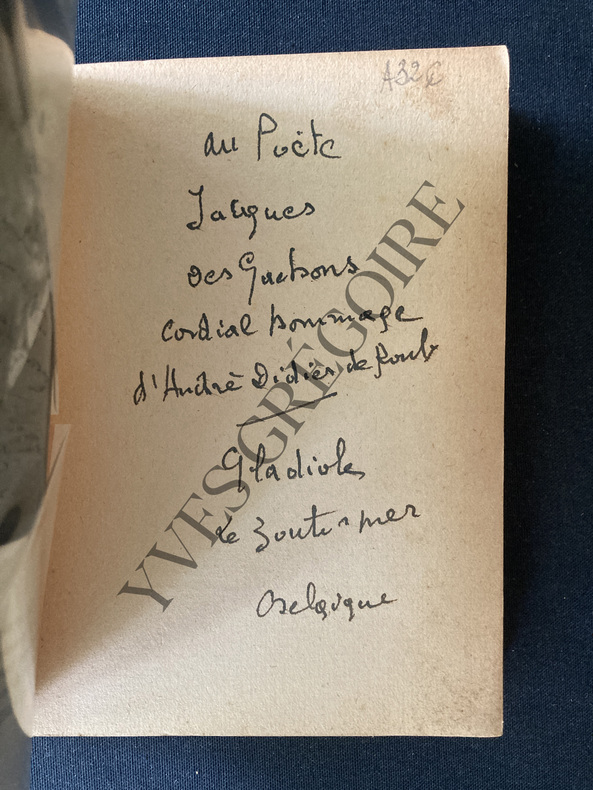 A32€
au Poète
Jacques
des Gachons
cordial hommage
d'André Didier de Roulx
Gladiole
Le Zoute s/mer
Belgique
YVES GRÉGOIRE